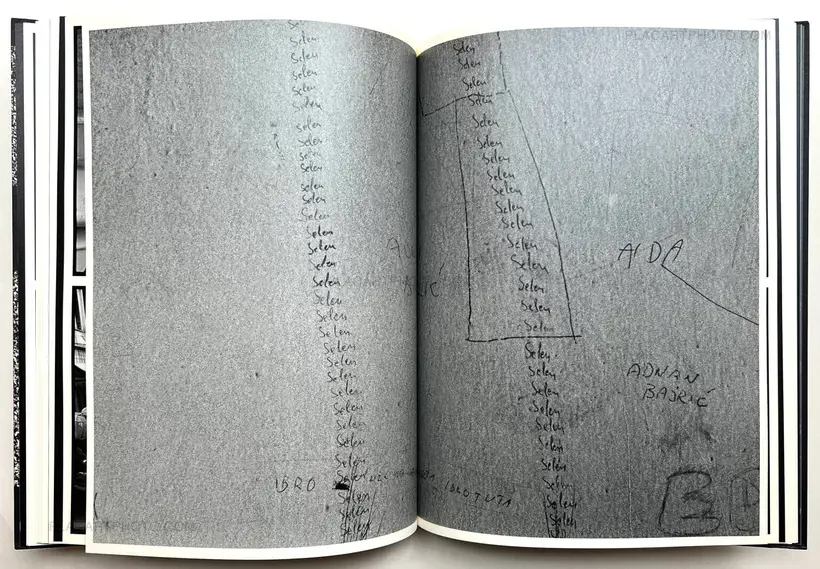 Selen
Selen
Selen
Selen
Selen
Selen
Selen
Selen
Selen
Selen
Selen
Selen
Selen
Selen
Selen
Selen
Selen
Selen
Selen
Selen
Selen
Selen
Selen
Selen
Selen
Selen
Selen
Selen
IBRO Selen
Selen
Selen
Selen
PLACARTPHOTO.COM
Selen
Selen
Selen
Selen
Selen
Selen
Selen
Selen
Selen
Selen
Selen
Selen
AIDA
Selen
Selen
Selen
Selen
Selen
ADNAN
Selen
BAJRIĆ
Selen
Selen
Selen
Selen
Selen
Selen
IBRO TUTA
Selen
Selen
PLACARTPHOTO.COM